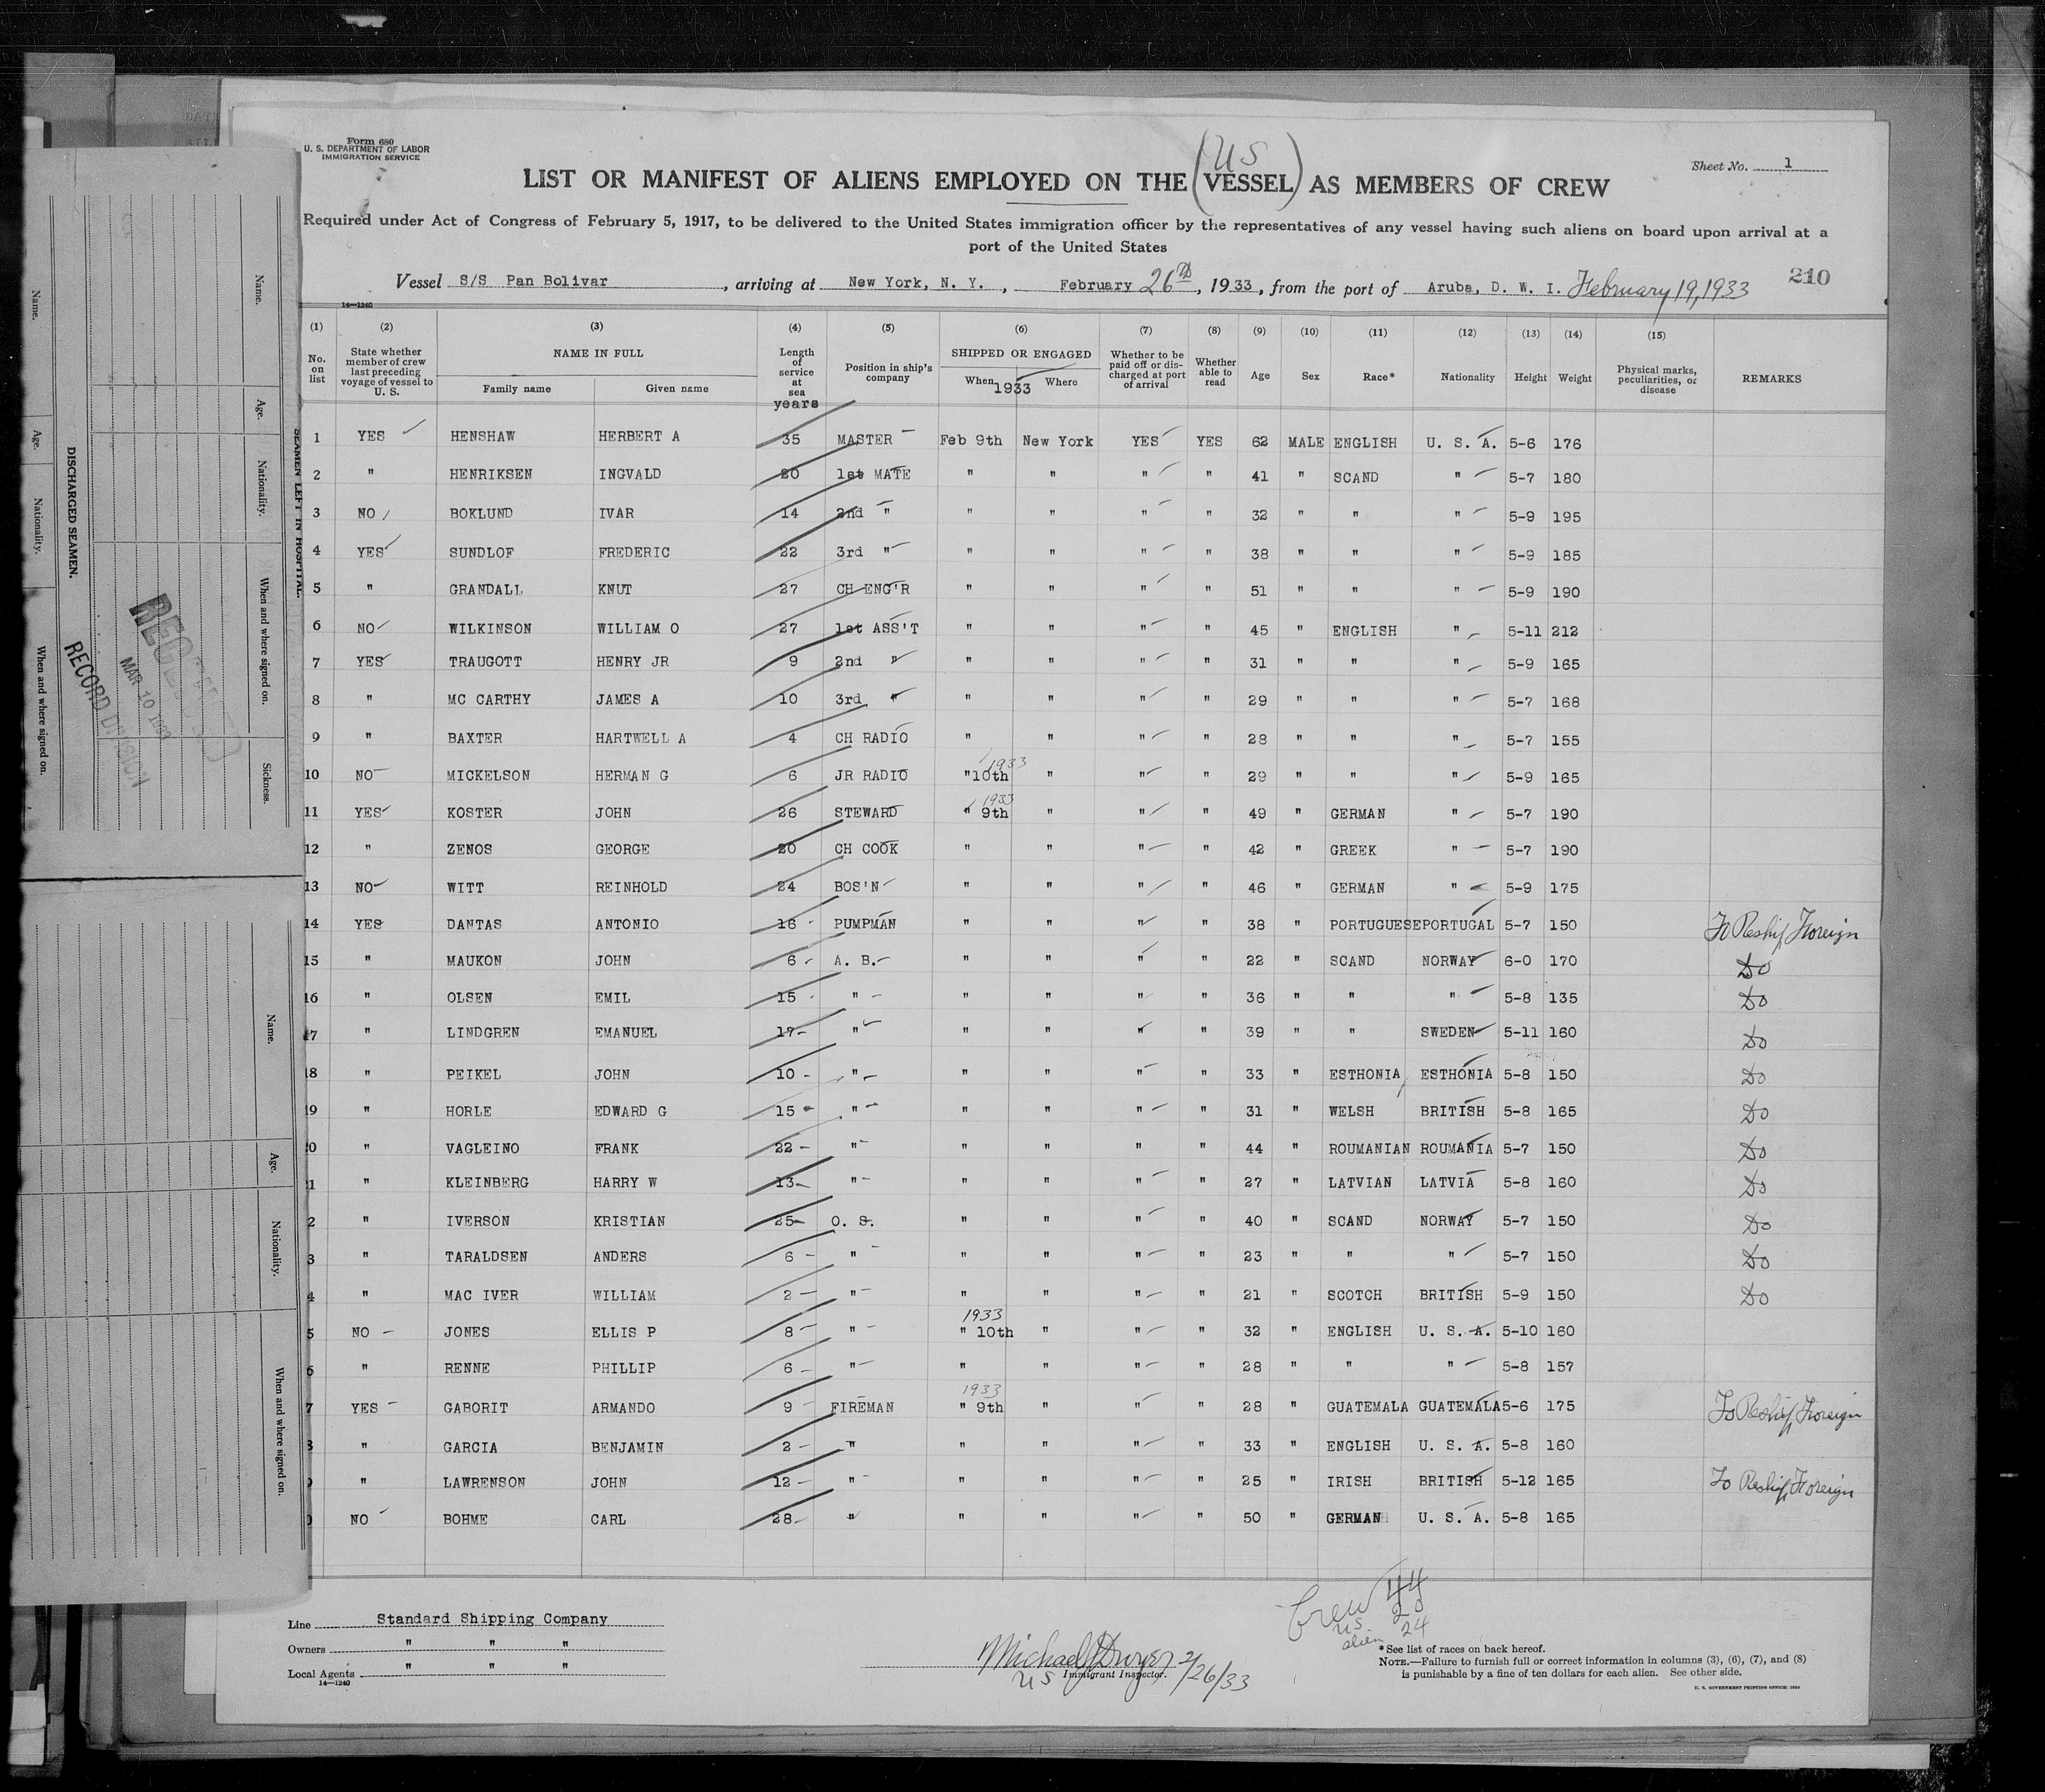 Form 680
U. S. DEPARTMENT OF LABOR
IMMIGRATION SERVICE
Sheet No. 1
(US)
LIST OR MANIFEST OF ALIENS EMPLOYED ON THE VESSEL AS MEMBERS OF CREW
Required under Act of Congress of February 5, 1917, to be delivered to the United States immigration officer by the representatives of any vessel having such aliens on board upon arrival at a
port of the United States
Vessel S/S Pan Bolivar, arriving at New York, N. Y., February 26th, 1933, from the port of Aruba, D. W. I. February 19, 1933
210
14—1240
(1) (2) (3) (4) (5) (6) (7) (8) (9) (10) (11) (12) (13) (14) (15)
No. on list
State whether member of crew last preceding voyage of vessel to U. S.
NAME IN FULL
Family name
Given name
Length of service at sea
years
Position in ship's company
SHIPPED OR ENGAGED
When
Where
1933
Whether to be paid off or discharged at port of arrival
Whether able to read
Age
Sex
Race*
Nationality
Height
Weight
Physical marks, peculiarities, or disease
REMARKS
1 YES HENSHAW HERBERT A 35 MASTER Feb 9th New York YES YES 62 MALE ENGLISH U. S. A. 5-6 176
2 " HENRIKSEN INGVALD 20 1st MATE " " " " 41 " SCAND " 5-7 180
3 NO BOKLUND IVAR 14 2nd " " " " " 32 " " " 5-9 195
4 YES SUNDLOF FREDERIC 22 3rd " " " " " 38 " " " 5-9 185
5 " GRANDALL KNUT 27 CH ENG'R " " " " 51 " " " 5-9 190
6 NO WILKINSON WILLIAM O 27 1st ASS'T " " " " 45 " ENGLISH " 5-11 212
7 YES TRAUGOTT HENRY JR 9 2nd " " " " " 31 " " " 5-9 165
8 " MC CARTHY JAMES A 10 3rd " " " " " 29 " " " 5-7 168
9 " BAXTER HARTWELL A 4 CH RADIO " " " " 28 " " " 5-7 155
1933
10 NO MICKELSON HERMAN G 6 JR RADIO "10th " " " 29 " " " 5-9 165
1933
11 YES KOSTER JOHN 26 STEWARD " 9th " " " 49 " GERMAN " 5-7 190
12 " ZENOS GEORGE 20 CH COOK " " " " 42 " GREEK " 5-7 190
13 NO WITT REINHOLD 24 BOS'N " " " " 46 " GERMAN " 5-9 175
14 YES DANTAS ANTONIO 16 PUMPMAN " " " " 38 " PORTUGUESE PORTUGAL 5-7 150 To Reship Foreign
15 " MAUKON JOHN 6 A. B. " " " " 22 " SCAND NORWAY 6-0 170 Do
16 " OLSEN EMIL 15 " " " " " 36 " " " 5-8 135 Do
17 " LINDGREN EMANUEL 17 " " " " " 39 " " SWEDEN 5-11 160 Do
18 " PEIKEL JOHN 10 " " " " " 33 " ESTHONIA ESTHONIA 5-8 150 Do
19 " HORLE EDWARD G 15 " " " " " 31 " WELSH BRITISH 5-8 165 Do
0 " VAGLEINO FRANK 22 " " " " " 44 " ROUMANIAN ROUMANIA 5-7 150 Do
1 " KLEINBERG HARRY W 13 " " " " " 27 " LATVIAN LATVIA 5-8 160 Do
2 " IVERSON KRISTIAN 25 O. S. " " " " 40 " SCAND NORWAY 5-7 150 Do
3 " TARALDSEN ANDERS 6 " " " " " 23 " " " 5-7 150 Do
4 " MAC IVER WILLIAM 2 " " " " " 21 " SCOTCH BRITISH 5-9 150 Do
1933
5 NO JONES ELLIS P 8 " " 10th " " " 32 " ENGLISH U. S. A. 5-10 160
6 " RENNE PHILLIP 6 " " " " " 28 " " " 5-8 157
1933
7 YES GABORIT ARMANDO 9 FIREMAN " 9th " " " 28 " GUATEMALA GUATEMALA 5-6 175 To Reship Foreign
8 " GARCIA BENJAMIN 2 " " " " " 33 " ENGLISH U. S. A. 5-8 160
9 " LAWRENSON JOHN 12 " " " " " 25 " IRISH BRITISH 5-12 165 To Reship Foreign
0 NO BOHME CARL 28 " " " " " 50 " GERMAN U. S. A. 5-8 165
Crew 44
US 20
alien 24
Line Standard Shipping Company
Owners " " "
Local Agents " " "
14—1240
Michael Dwyer 2/26/33
US Immigrant Inspector.
*See list of races on back hereof.
NOTE.—Failure to furnish full or correct information in columns (3), (6), (7), and (8)
is punishable by a fine of ten dollars for each alien. See other side.
U. S. GOVERNMENT PRINTING OFFICE: 1930
SEAMEN LEFT IN HOSPITAL.
Name.
Age.
Nationality.
When and where signed on.
Sickness.
DISCHARGED SEAMEN.
Name.
Age.
Nationality.
When and where signed on.
RECEIVED
MAR 10 1933
RECORD DIVISION
Name.
Age.
Nationality.
When and where signed on.